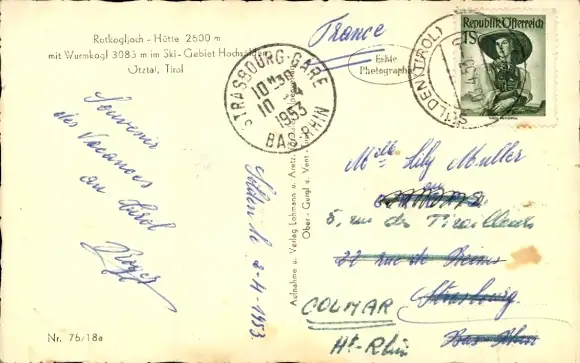 Rotkogljoch - Hütte 2600 m
mit Wurmkogl 3083 m im Ski-Gebiet Hochsölden
Ötztal, Tirol
Souvenir
des Vacances
au Tirol
Roger
Sölden le 2-4-1953
Nr. 76/18a
Aufnahme u. Verlag Lohmann u. Aretz,
Ober-Gurgl u. Vent
STRASBOURG-GARE
10 4
1953
BAS-RHIN
France
Echte
Photographie
SÖLDEN (TIROL)
Republik Österreich
1S
Melle Lily Muller
5, rue des Tirailleurs
22 rue de Reims
Strasbourg
Bas-Rhin
COLMAR
Ht-Rhin